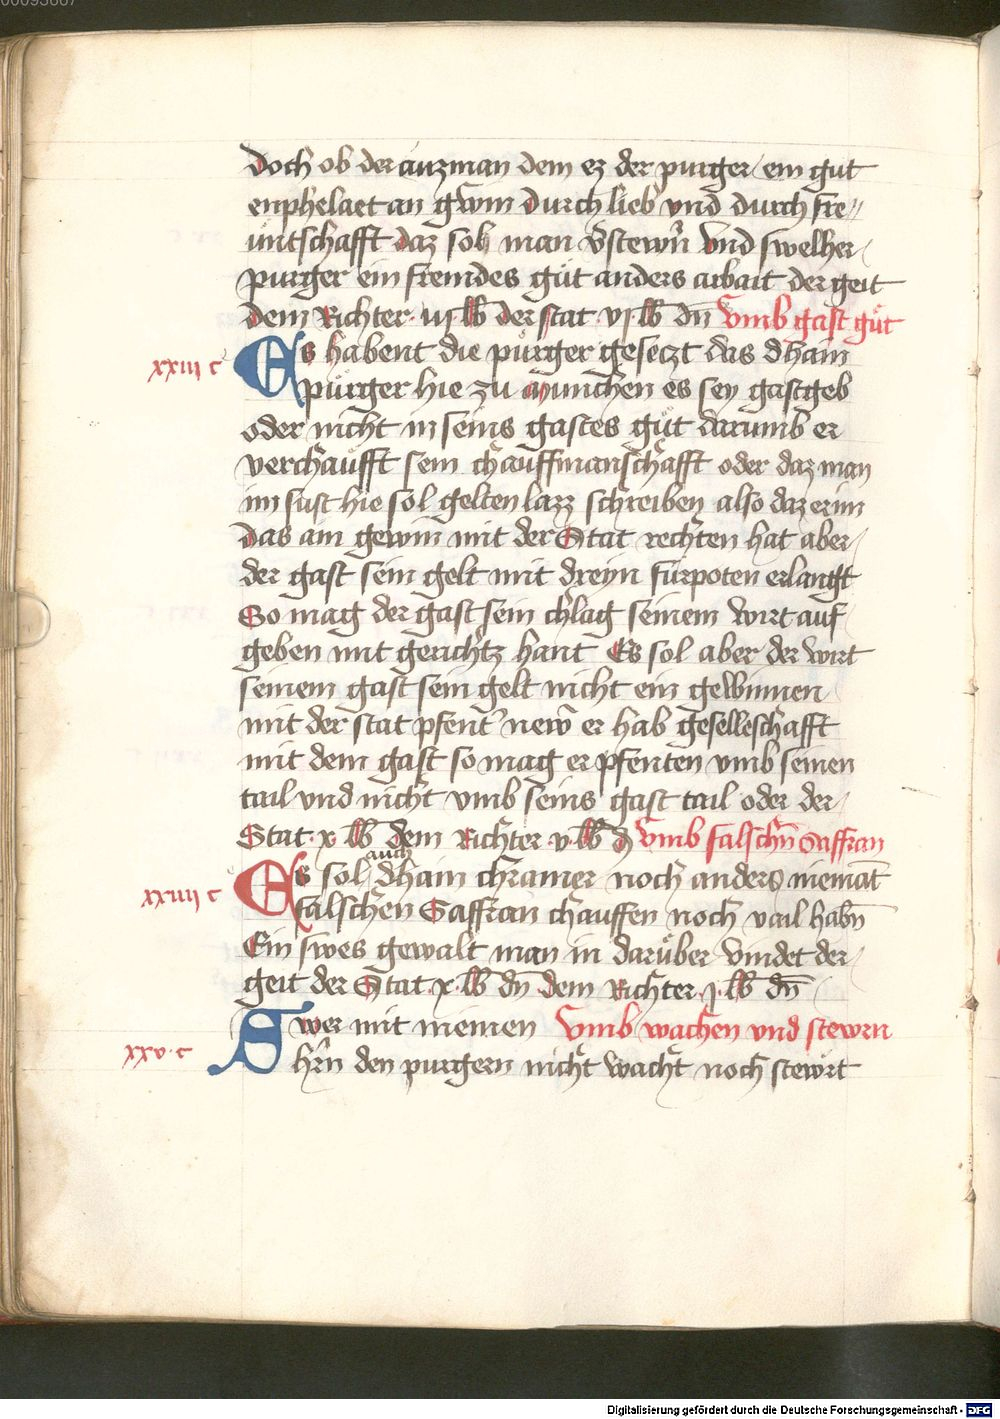 00093607
doch ob der auzman dem ez der purger ein gut
enphelaet an gwin durch lieb vnd durch fre//
untschafft daz sol man v̄stewrn̄ vnd swelher
purger ein fremdes gůt anders arbait der geit
dem Richter iij lb der stat vj lb dn̄ Vmb gast gůt
xxiij c Es habent die pürger gesetzt das dhain
pürger hie zu munchen es sey gastgeb
oder nicht in seins gastes gůt darumb er
verchaufft sein chauffmanschafft oder daz man
im sust hie sol gelten lazz schreiben also daz er im
das ain gewin mit der Stat rechten hat aber
der gast sein gelt mit dreyn fürpoten erlangt
So mag der gast sein chlag seinem wirt auf
geben mit gerichtz hant Es sol aber der wirt
seinem gast sein gelt nicht ein gewinnen
mit der stat pfent newr er hab geselleschafft
mit dem gast so mag er pfenten vmb seinen
tail vnd nicht vmb seins gast tail oder der
Stat x lb dem Richter v lb ₰ Vmb falschn̄ Saffran
auch
xxiiij c Es sol dhain chramer noch anders niemāt
falschen Saffran chauffen noch vail habn̄
Ein swes gewalt man in darüber vindet der
geit der Stat x lb dn̄ dem Richter j lb dn̄
Swer mit meinen Vmb wachen vnd stewrn
xxv c hrn̄ den purgern nicht wacht noch stewrt
Digitalisierung gefördert durch die Deutsche Forschungsgemeinschaft - DFG